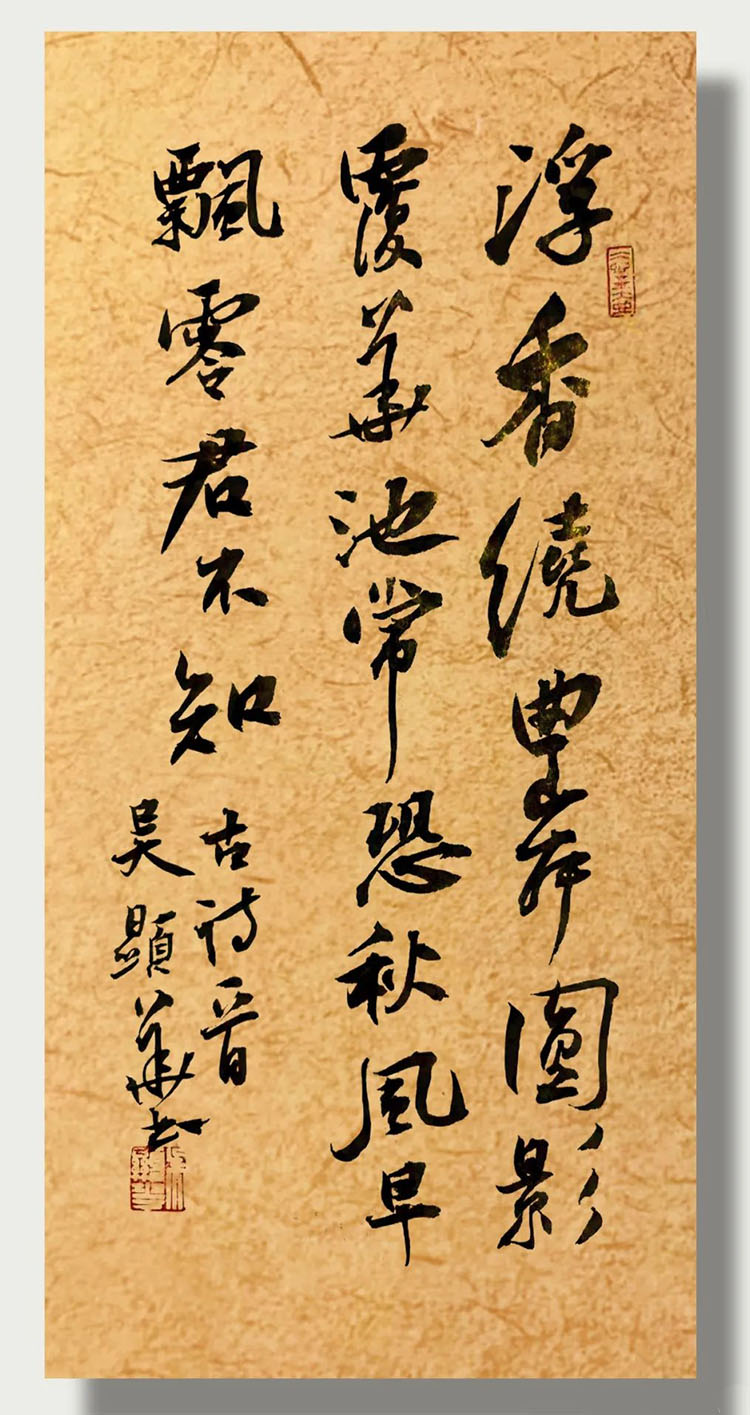 浮香繞曲岸圓影
覆華池常恐秋風早
飄零君不知
古詩晋
吳顯華书